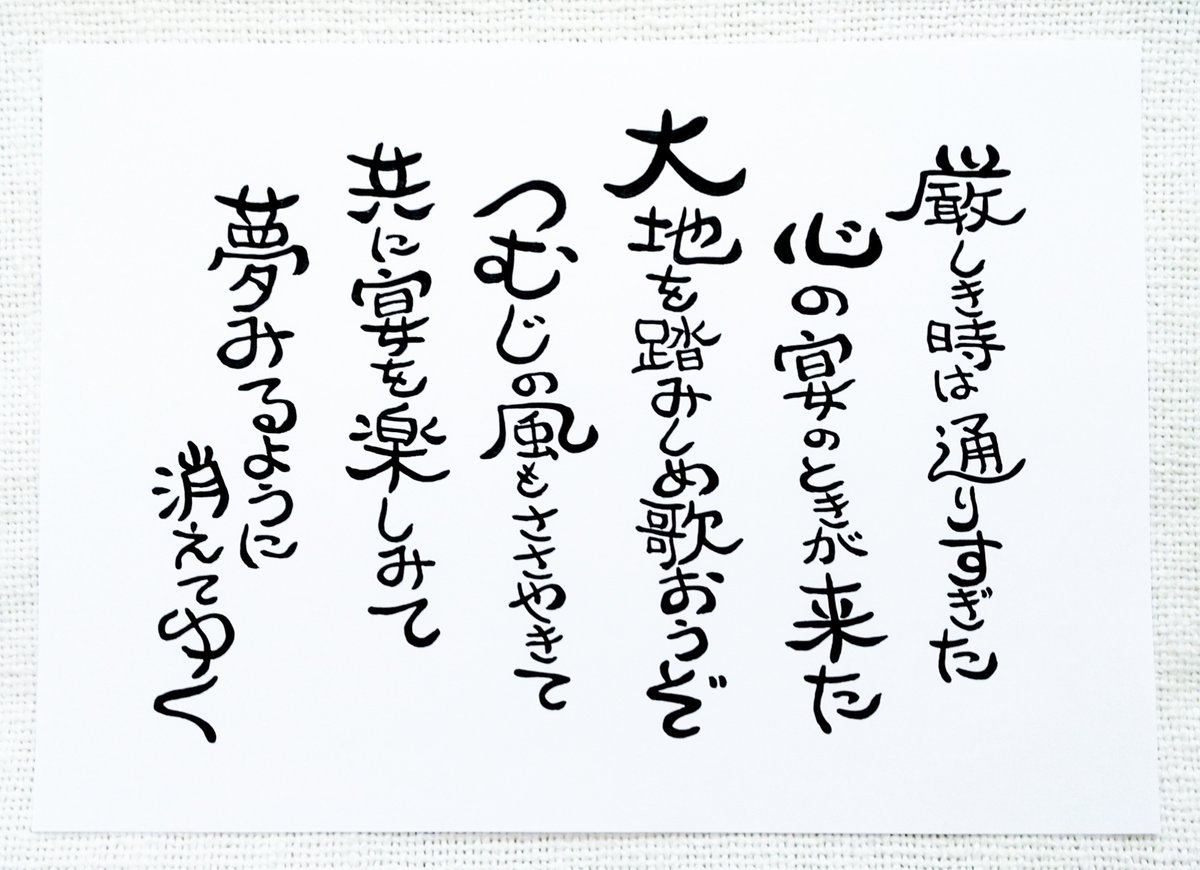 厳しき時は通りすぎた
心の宴のときが来た
大地を踏みしめ歌おうぞ
つむじの風もささやきて
共に宴を楽しみて
夢みるように
消えてゆく